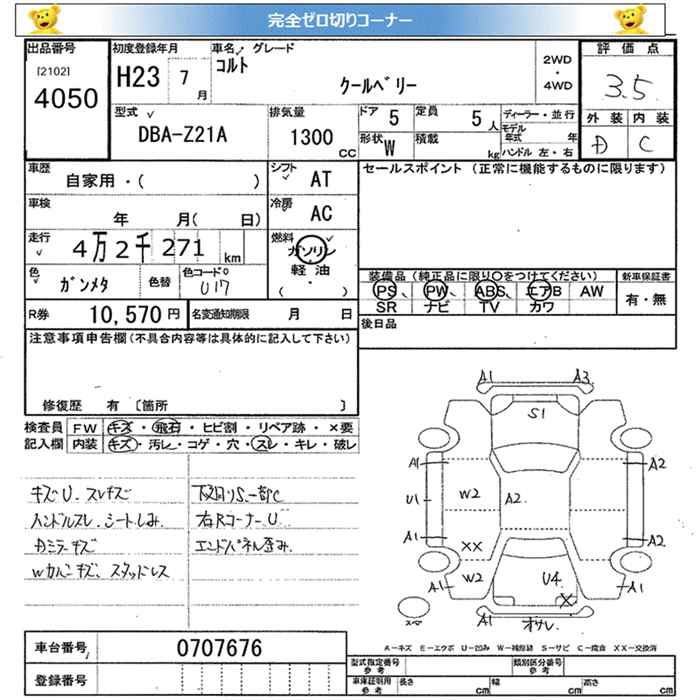 完全ゼロ切りコーナー
出品番号
[2102]
4050
初度登録年月
H23 7 月
車名 グレード
コルト
クールベリー
2WD
・
4WD
評価点
3.5
外装 内装
D C
型式
DBA-Z21A
排気量
1300 CC
ドア 5
定員 5 人
形状 W
積載 kg
ディーラー・並行
モデル年式 年
ハンドル 左・右
車歴
自家用・( )
シフト AT
車検
年 月( 日)
冷房 AC
走行
4万2千271 km
燃料
ガソリン
・
軽油
・
( )
色
ガンメタ
色替
色コードNo
U17
R券 10,570 円
名変通知期限 月 日
セールスポイント (正常に機能するものに限ります)
装備品 (純正品に限り○をつけてください)
PS、 PW、 ABS、 エアB AW
SR ナビ TV カワ
新車保証書
有・無
後日品
注意事項申告欄(不具合内容等は具体的に記入して下さい)
修復歴 有 〔箇所 〕
検査員
記入欄
FW キズ・飛石・ヒビ割・リペア跡・×要
内装 キズ・汚レ・コゲ・穴・スレ・キレ・破レ
キズU.スレキズ
ハンドルスレ.シートしみ.
Dミラーキズ
スタッドレス
下廻りS.一部C
右Rコーナー U
エンドパネル歪み.
A1 A3
S1
A1 A2
U1 W2 A2
A1 A2
XX
W2 U4
A1 A1
X
オサレ.
A-キズ E-エクボ U-凹み W-補修跡 S-サビ C-腐食 XX-交換済
車台番号 0707676
登録番号
型式指定番号
参考
類別区分番号
参考
車庫証明用
参考
長さ cm 幅 cm 高さ cm